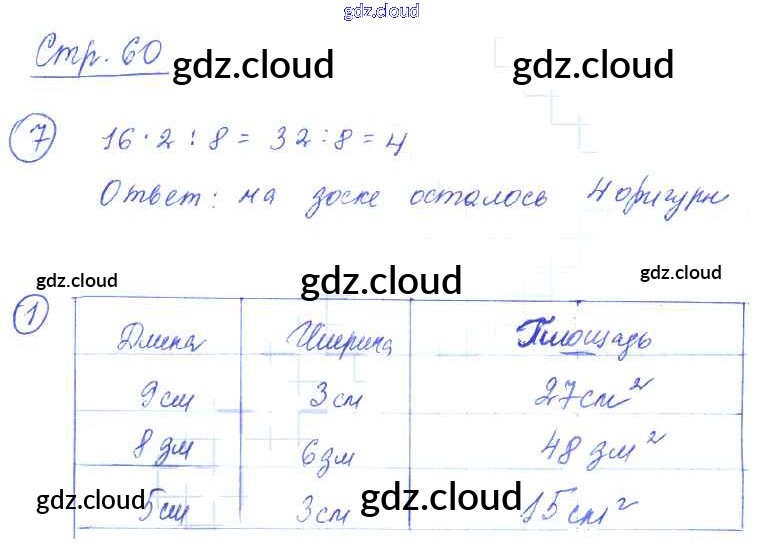 gdz.cloud
Стр. 60 gdz.cloud gdz.cloud
7 16 · 2 : 8 = 32 : 8 = 4
Ответ: на доске осталось 4 фигуры
gdz.cloud gdz.cloud gdz.cloud
1 Длина Ширина Площадь
9 см 3 см 27 см²
8 дм 6 дм 48 дм²
gdz.cloud gdz.cloud gdz.cloud
5 см 3 см 15 см²